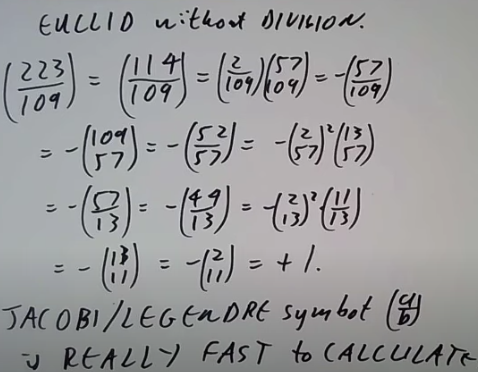 EUCLID without DIVISION.
(223/109) = (114/109) = (2/109)(57/109) = -(57/109)
= -(109/57) = -(52/57) = -(2/57)²(13/57)
= -(57/13) = -(44/13) = -(2/13)²(11/13)
= -(13/11) = -(2/11) = +1.
JACOBI/LEGENDRE symbol (a/b)
is REALLY FAST to CALCULATE